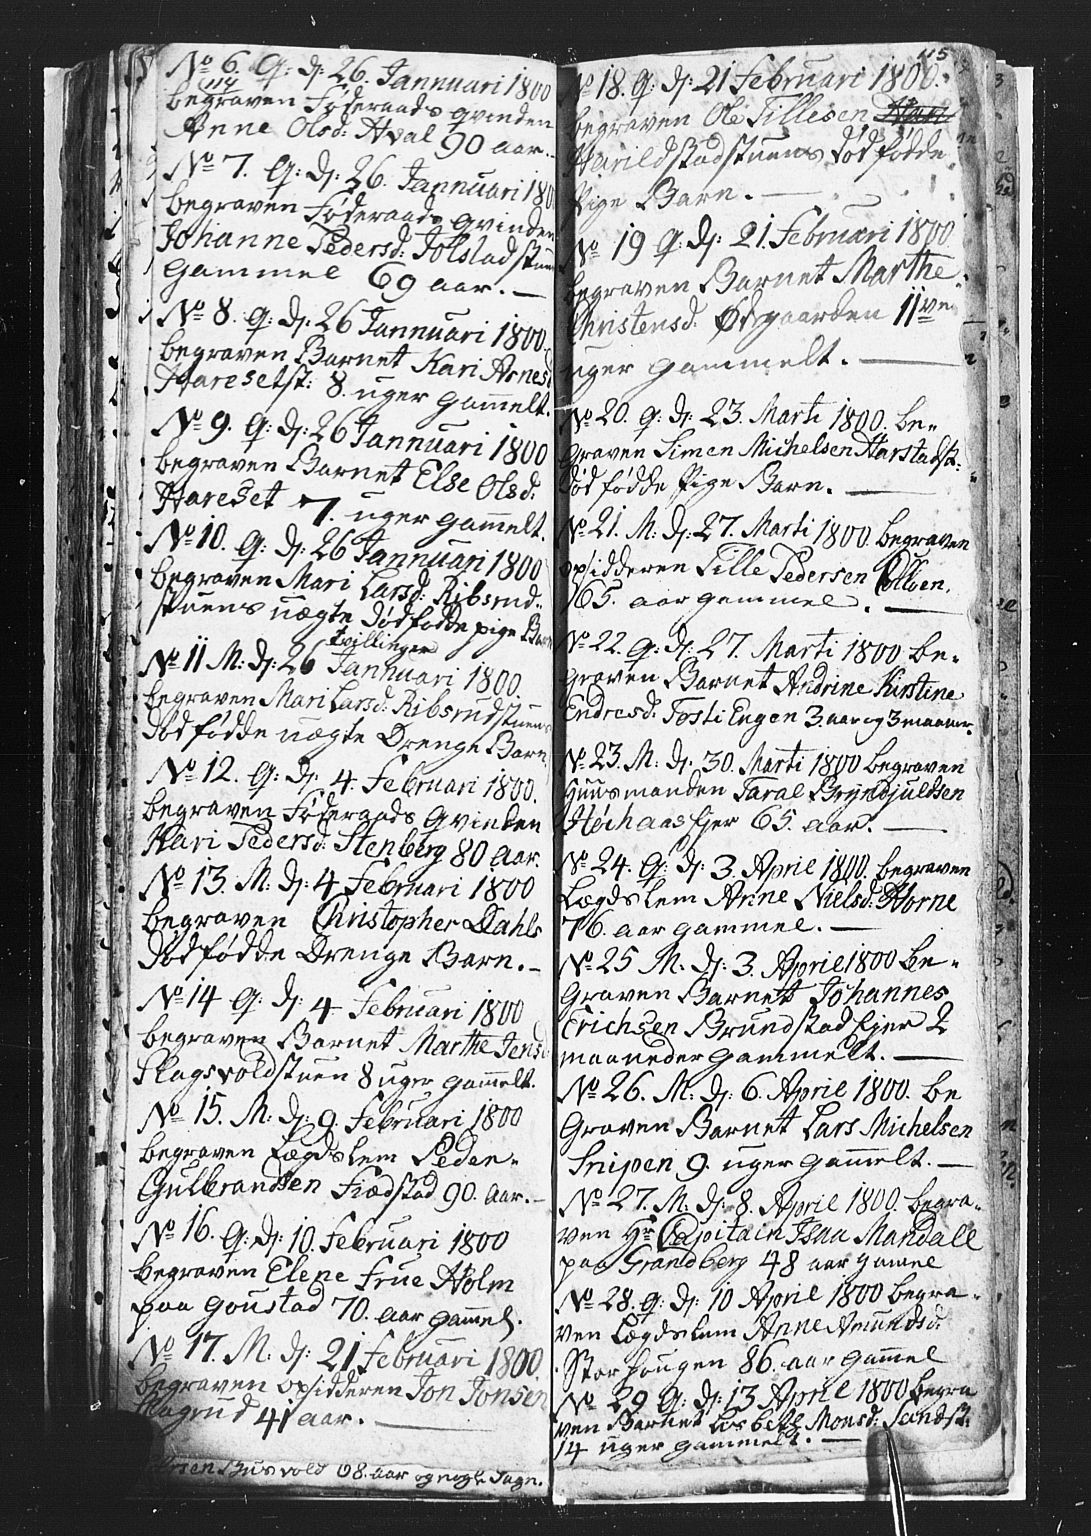 114
No 6 Q: d: 26. Jannuari 1800
begraven Føderaads qvinden
Anne Olsd: Hval 90 aar.
No 7. Q: d: 26. Jannuari 180
begraven Føderaads qvinden
Johanne Pedersd: Jolstad stuen
gammel 69 aar. —
No 8. Q: d: 26 Jannuari 1800.
begraven Barnet Kari Arnesd
Haresetst: 8. uger gam̄elt.
No 9. Q: d: 26 Jannuari 1800
begraven Barnet Else Olsd:
Hareset 7. uger gam̄elt.
No 10. Q: d: 26 Jannuari 1800
begraven Mari Larsd: Ribsrud-
stuens uægte dødfødde pige Barn
tvillinger
No 11 M: d: 26 Jannuari 1800.
begraven Mari Larsd: Ribsrudstuens
dødfødde uægte Drenge Barn
No 12. Q: d: 4. Februari 1800.
begraven Føderaads qvinden
Kari Pedersd: Stenberg 80 aar.
No 13. M: d: 4 Februari 1800
begraven Christopher Dahls
dødfødde Drenge Barn. —
No 14 Q: d: 4 Februari 1800
begraven Barnet Marthe Jensd
Slagsvoldstuen 8 uger gam̄elt.
No 15. M: d: 9 Februari 1800
begraven Lægdslem Peder
Gulbrandsen Fiædstad 90. aar. —
No 16. Q: d: 10. Februari 1800
begraven Elene Frue Holm
paa Goustad 70. aar gam̄el.
No 17. M: d: 21 Februari 1800.
begraven opsidderen Jon Jonsen
Slagrud 41 aar. —
Busvold 68. aar og nogle Dagn.
115
No 18. Q: d: 21 Februari 1800.
begraven Ole Tillesen
Harildstadstuens dødfødde
Pige Barn. —
No 19 Q: d: 21. Februari 1800
begraven Barnet Marthe
Christensd: Ødegaarden 11ve
uger gammelt. —
No 20. Q: d: 23. Marti 1800. be-
graven Simen Michelsen Harstadst:
dødfødde Pige Barn. —
No 21. M: d: 27. Marti 1800. begraven
opsidderen Tille Pedersen Kolloen.
65. aar gammel. —
No 22. Q: d: 27. Marti 1800 be-
graven Barnet Andrine Kirstine
Endresd: Tosti Engen 3 aar og 3 maaner.
No 23. M: d: 30. Marti 1800 begraven
Huusmanden Taral Bryndjuldsen
Høihaas Ejer 65. aar. —
No 24. Q: d: 3. April 1800. begraven
Lægdslem Anne Nielsd: Horne
76. aar gammel. —
No 25 M: d: 3. April 1800 be-
graven Barnet Johannes
Erichsen Brundstad Ejer 2
maaneder gammelt. —
No 26. M: d: 6. April 1800. be
graven Barnet Lars Michelsen
Snipen 9. uger gam̄elt. —
No 27. M: d: 8. April 1800. begra-
ven Hr Capitain Isaa Mandall
paa Grandberg 48 aar gamel
No 28. Q: d: 10 April 1800 begra-
ven Lægdslem Anne Amundsd:
Storhougen 86. aar gam̄el
No 29 Q: d: 13 April 1800 begra
ven Barnet Lisbeth Monsd: Sandst:
14 uger gammelt. —